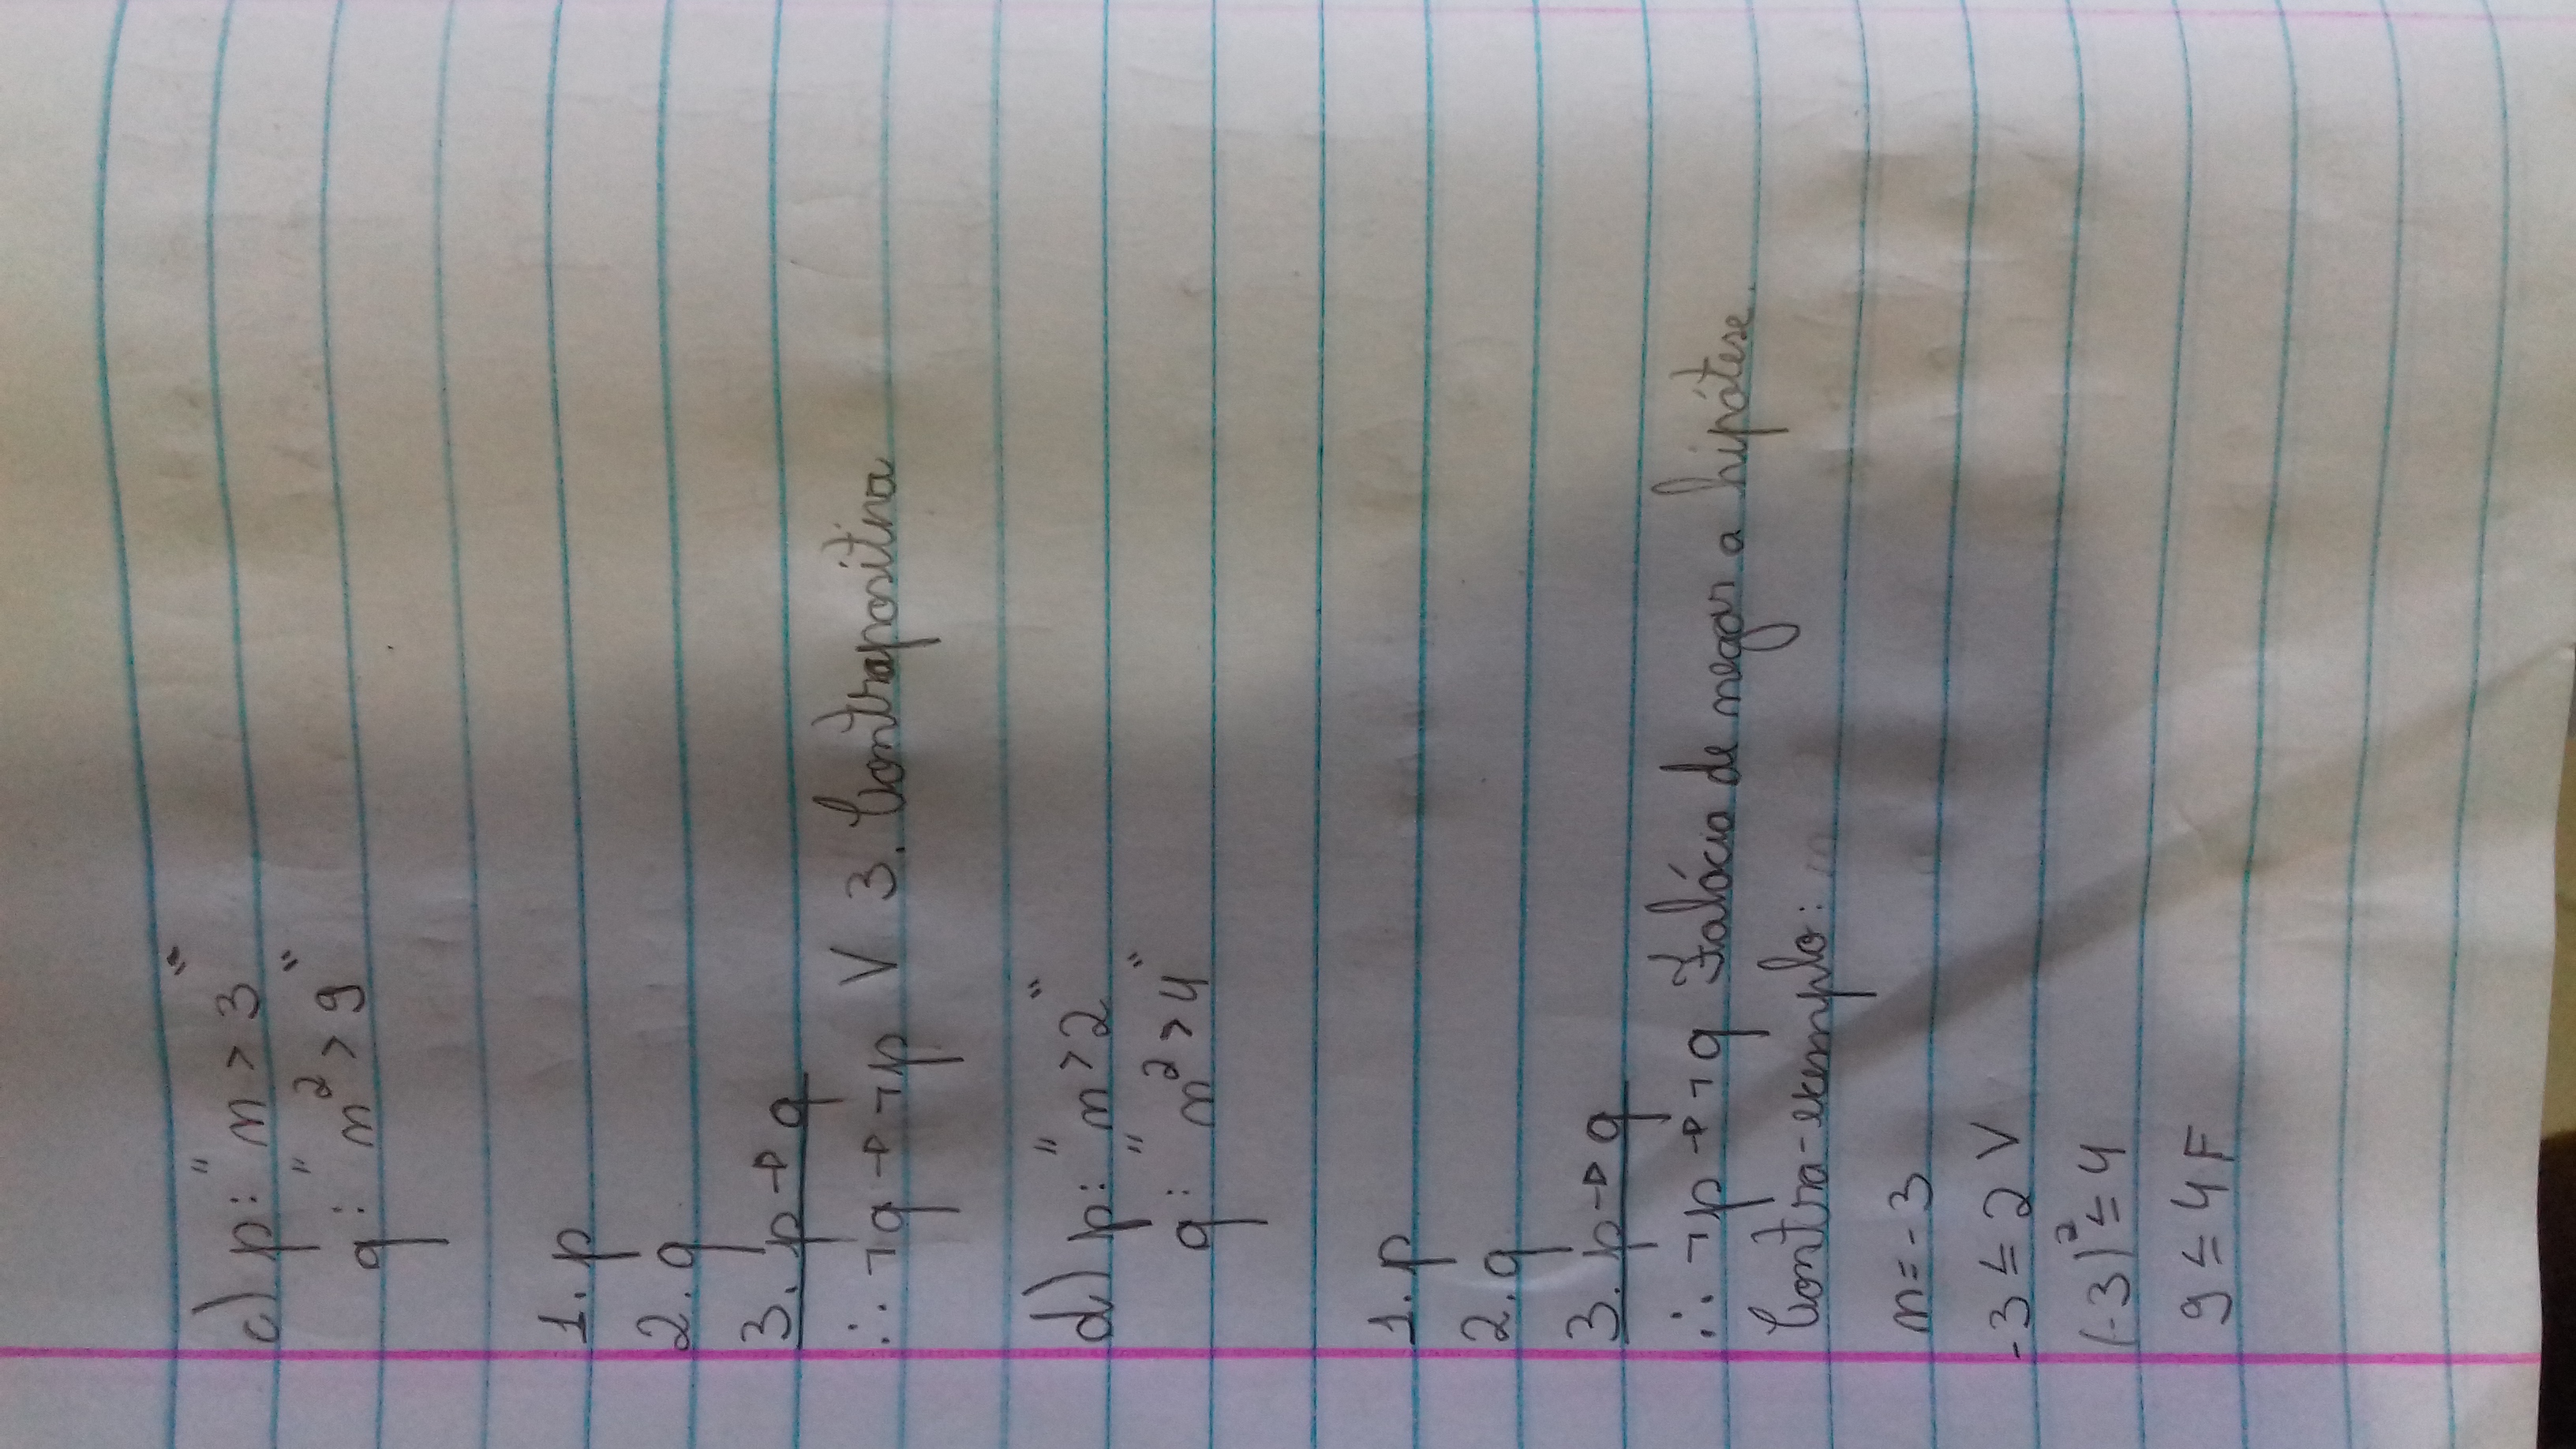 c) p: "n > 3"
q: "n² > 9"
1. p
2. q
3. p → q
∴ ¬q → ¬p V 3. Contrapositiva
d) p: "n > 2"
q: "n² > 4"
1. p
2. q
3. p → q
∴ ¬p → ¬q Falácia de negar a hipótese.
Contra-exemplo:
n = -3
-3 ≤ 2 V
(-3)² ≤ 4
9 ≤ 4 F